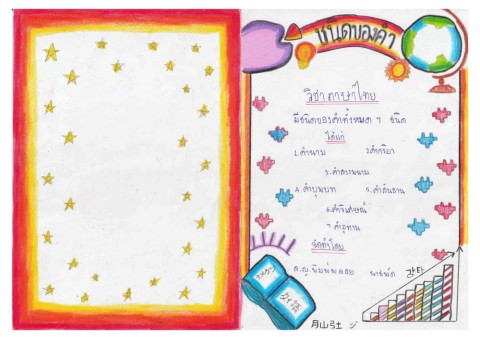 ชนิดของคำ
วิชาภาษาไทย
มีชนิดของคำทั้งหมด ๗ ชนิด
ได้แก่
1.คำนาม 2.คำกริยา
3.คำสรรพนาม
4.คำบุพบท 5.คำสันธาน
6.คำวิเศษณ์
7.คำอุทาน
จัดทำโดย
ด.ญ.